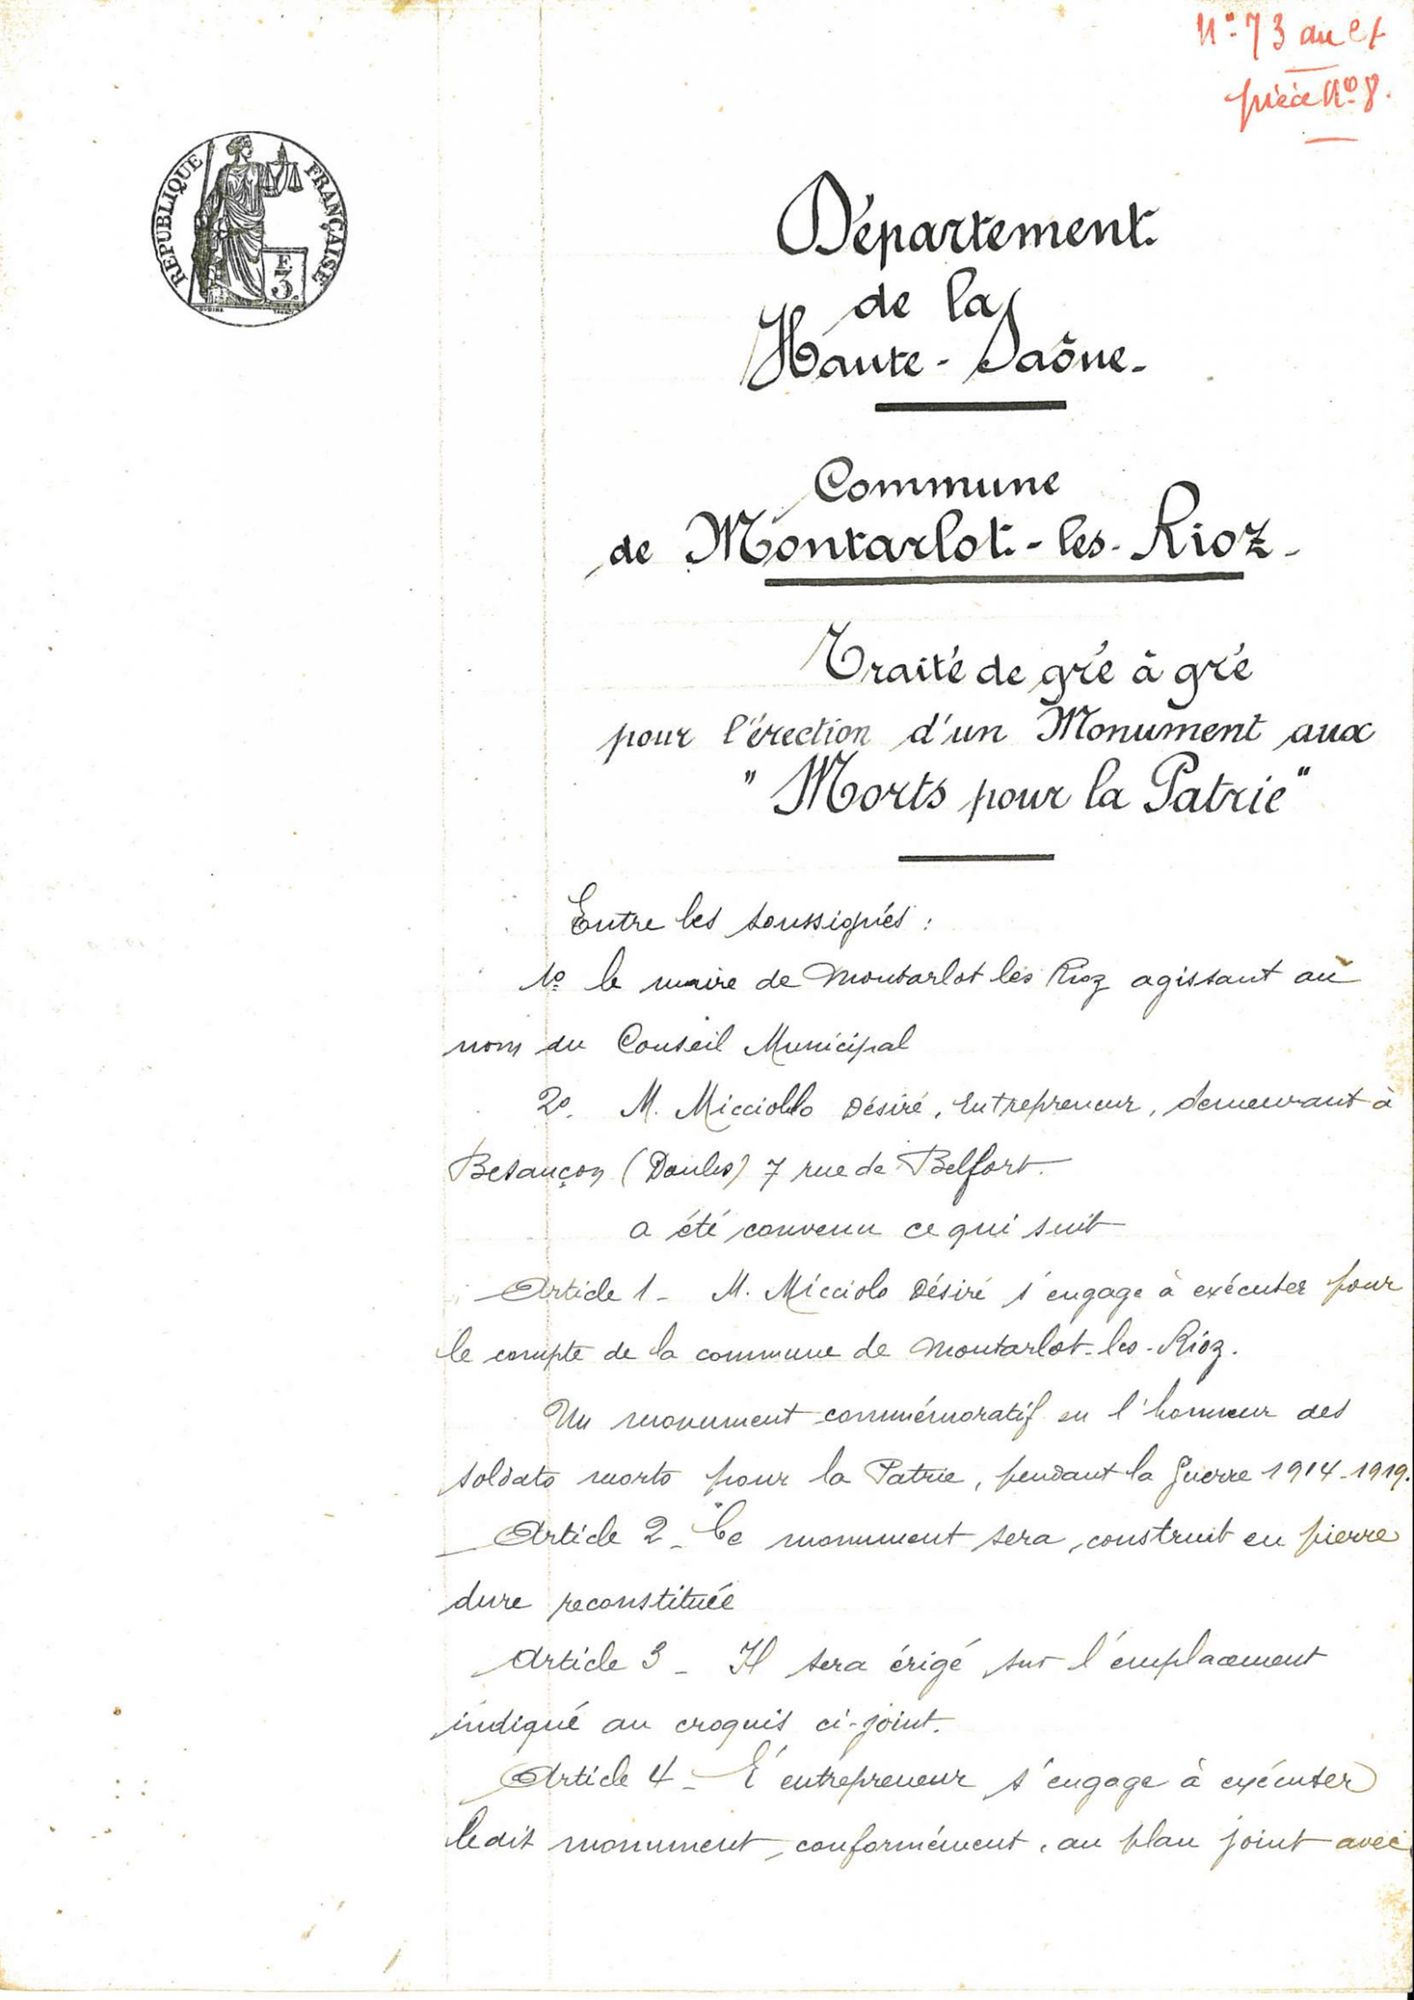 N° 73 du
pièce N° 8.
RÉPUBLIQUE FRANÇAISE
F
3.
Département
de la
Haute-Saône-
Commune
de Montarlot-les-Rioz-
Traité de gré à gré
pour l'érection d'un Monument aux
"Morts pour la Patrie"
Entre les soussignés :
1° le maire de Montarlot les Rioz agissant au
nom du Conseil Municipal
2° M. Micciollo Désiré, Entrepreneur, demeurant à
Besançon (Doubs) 7 rue de Belfort.
a été convenu ce qui suit
Article 1 - M. Micciolo Désiré s'engage à exécuter pour
le compte de la commune de Montarlot-les-Rioz.
Un monument commémoratif en l'honneur des
soldats morts pour la Patrie, pendant la Guerre 1914-1919.
Article 2 - Ce monument sera construit en pierre
dure reconstituée
Article 3 - Il sera érigé sur l'emplacement
indiqué au croquis ci-joint.
Article 4 - L'entrepreneur s'engage à exécuter
ledit monument, conformément, au plan joint avec